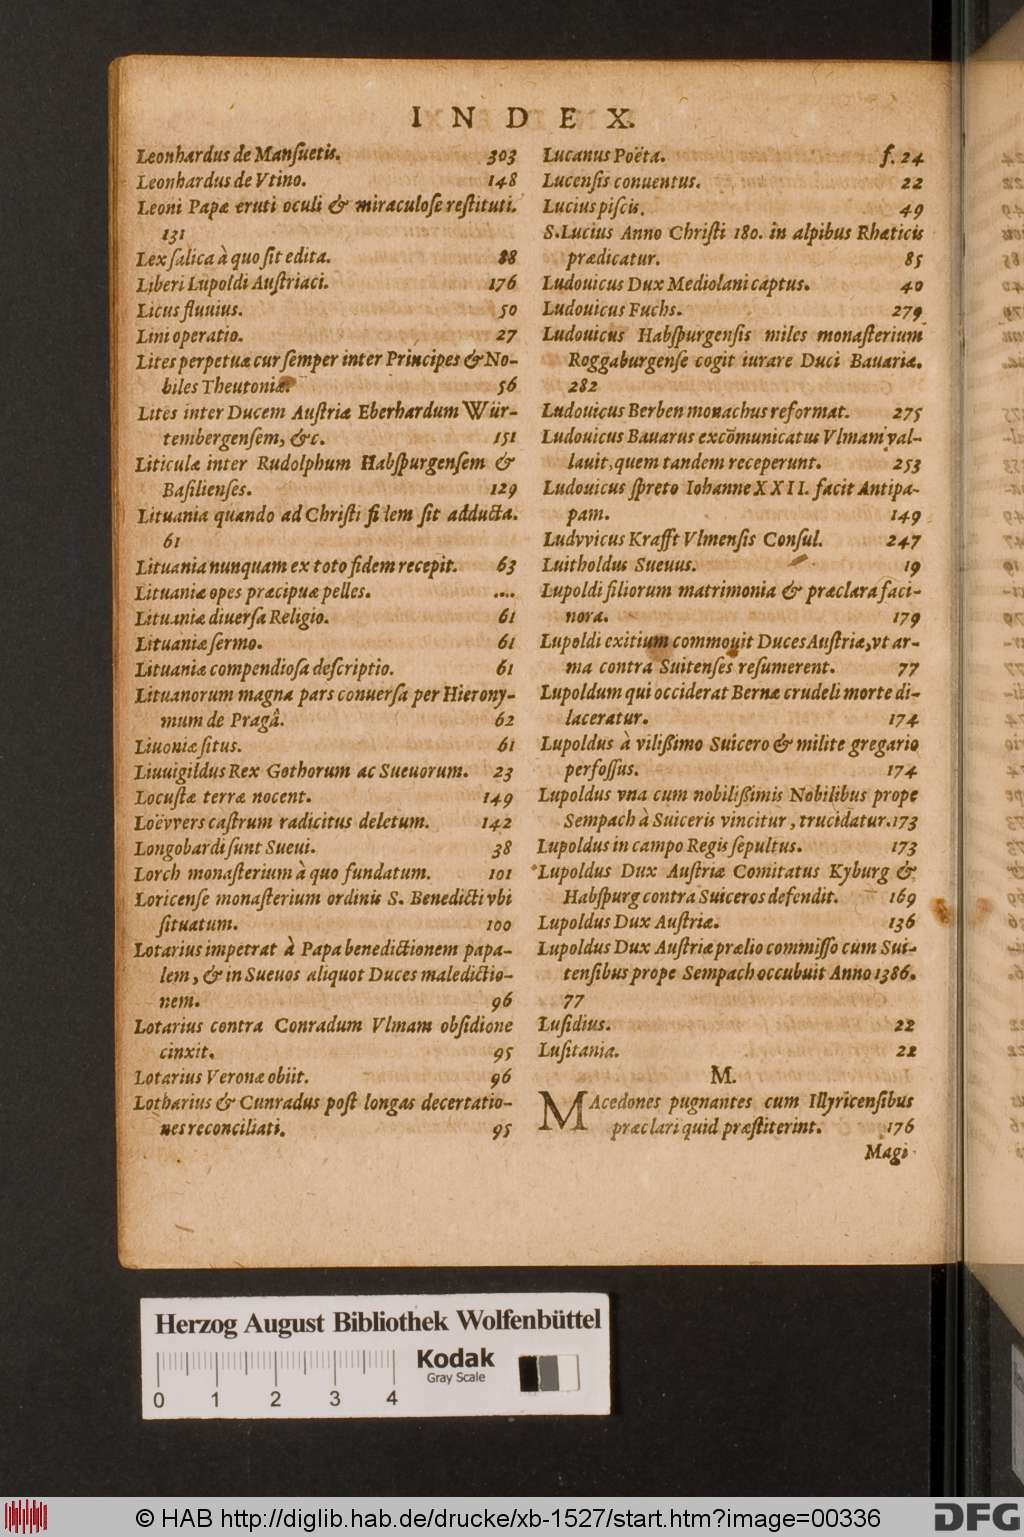 INDEX.
Leonhardus de Mansuetis. 303
Leonhardus de Vtino. 148
Leoni Papæ eruti oculi & miraculose restituti.
131
Lex salica à quo sit edita. 88
Liberi Lupoldi Austriaci. 176
Licus fluuius. 50
Lini operatio. 27
Lites perpetuæ cur semper inter Principes & No-
biles Theutoniæ. 56
Lites inter Ducem Austriæ Eberhardum Wür-
tembergensem, &c. 151
Liticulæ inter Rudolphum Habspurgensem &
Basilienses. 129
Lituania quando ad Christi fidem sit adducta.
61
Lituania nunquam ex toto fidem recepit. 63
Lituaniæ opes præcipuæ pelles. ....
Lituaniæ diuersa Religio. 61
Lituaniæ sermo. 61
Lituaniæ compendiosa descriptio. 61
Lituanorum magna pars conuersa per Hierony-
mum de Pragâ. 62
Liuoniæ situs. 61
Liuuigildus Rex Gothorum ac Sueuorum. 23
Locustæ terræ nocent. 149
Loëvvers castrum radicitus deletum. 142
Longobardi sunt Sueui. 38
Lorch monasterium à quo fundatum. 101
Loricense monasterium ordinis S. Benedicti vbi
situatum. 100
Lotarius impetrat à Papa benedictionem papa-
lem, & in Sueuos aliquot Duces maledictio-
nem. 96
Lotarius contra Conradum Vlmam obsidione
cinxit. 95
Lotarius Veronæ obiit. 96
Lotharius & Cunradus post longas decertatio-
nes reconciliati. 95
Lucanus Poëta. f. 24
Lucensis conuentus. 22
Lucius piscis. 49
S. Lucius Anno Christi 180. in alpibus Rhæticis
prædicatur. 85
Ludouicus Dux Mediolani captus. 40
Ludouicus Fuchs. 279
Ludouicus Habspurgensis miles monasterium
Roggaburgense cogit iurare Duci Bauariæ.
282
Ludouicus Berben monachus reformat. 275
Ludouicus Bauarus excōmunicatus Vlmam val-
lauit, quem tandem receperunt. 253
Ludouicus spreto Iohanne XXII. facit Antipa-
pam. 149
Ludvvicus Krafft Vlmensis Consul. 247
Luitholdus Sueuus. 19
Lupoldi filiorum matrimonia & præclara faci-
nora. 179
Lupoldi exitium commouit Duces Austriæ, vt ar-
ma contra Suitenses resumerent. 77
Lupoldum qui occiderat Bernæ crudeli morte di-
laceratur. 174
Lupoldus à vilißimo Suicero & milite gregario
perfossus. 174
Lupoldus vna cum nobilißimis Nobilibus prope
Sempach à Suiceris vincitur, trucidatur. 173
Lupoldus in campo Regis sepultus. 173
Lupoldus Dux Austriæ Comitatus Kyburg &
Habspurg contra Suiceros defendit. 169
Lupoldus Dux Austriæ. 136
Lupoldus Dux Austriæ prælio commisso cum Sui-
tensibus prope Sempach occubuit Anno 1386.
77
Lusidius. 22
Lusitania. 22
M.
MAcedones pugnantes cum Illyricensibus
præclari quid præstiterint. 176
Magi
Herzog August Bibliothek Wolfenbüttel
Kodak
Gray Scale
0 1 2 3 4
© HAB http://diglib.hab.de/drucke/xb-1527/start.htm?image=00336
DFG